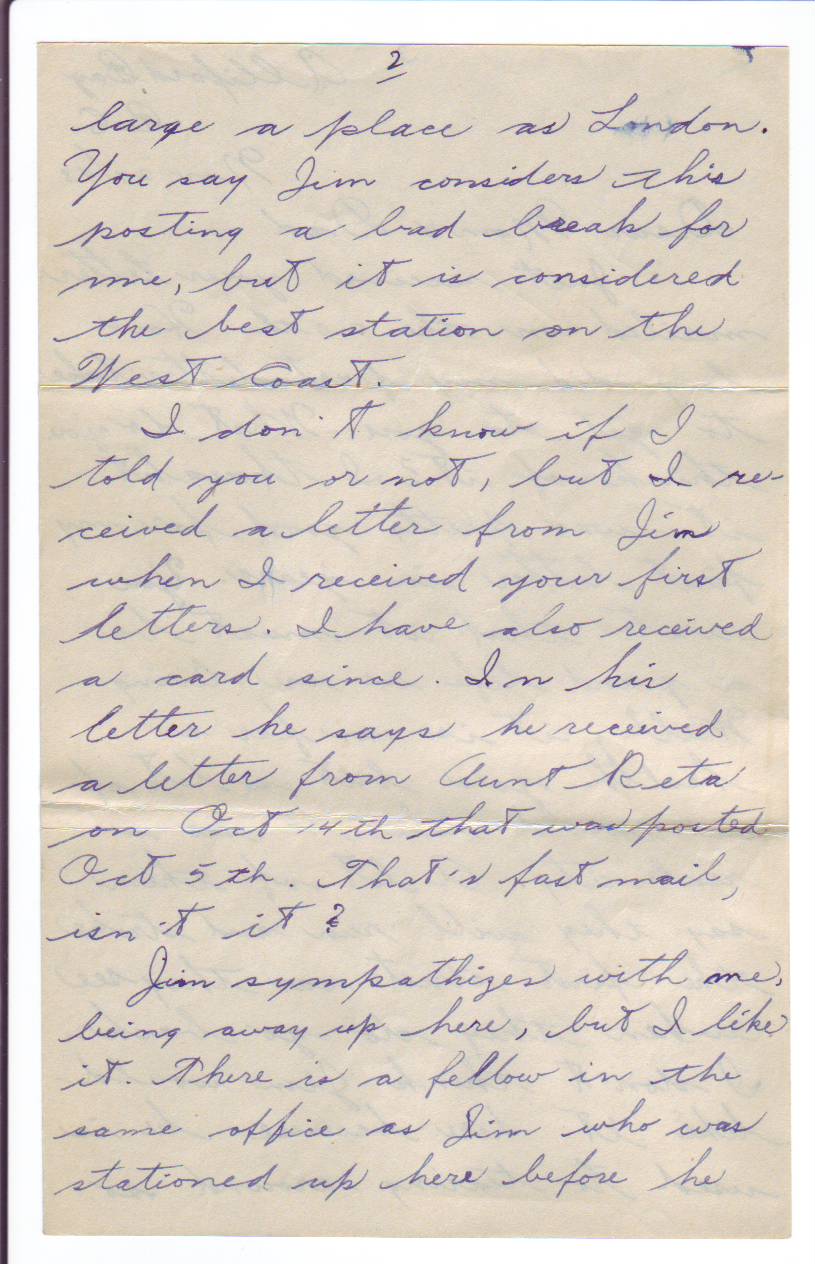 2
large a place as London.
You say Jim considers this
posting a bad break for
me, but it is considered
the best station on the
West Coast.
I don't know if I
told you or not, but I re-
ceived a letter from Jim
when I received your first
letters. I have also received
a card since. In his
letter he says he received
a letter from Aunt Reta
on Oct 14th that was posted
Oct 5th. That's fast mail,
isn't it?
Jim sympathizes with me,
being away up here, but I like
it. There is a fellow in the
same office as Jim who was
stationed up here before he